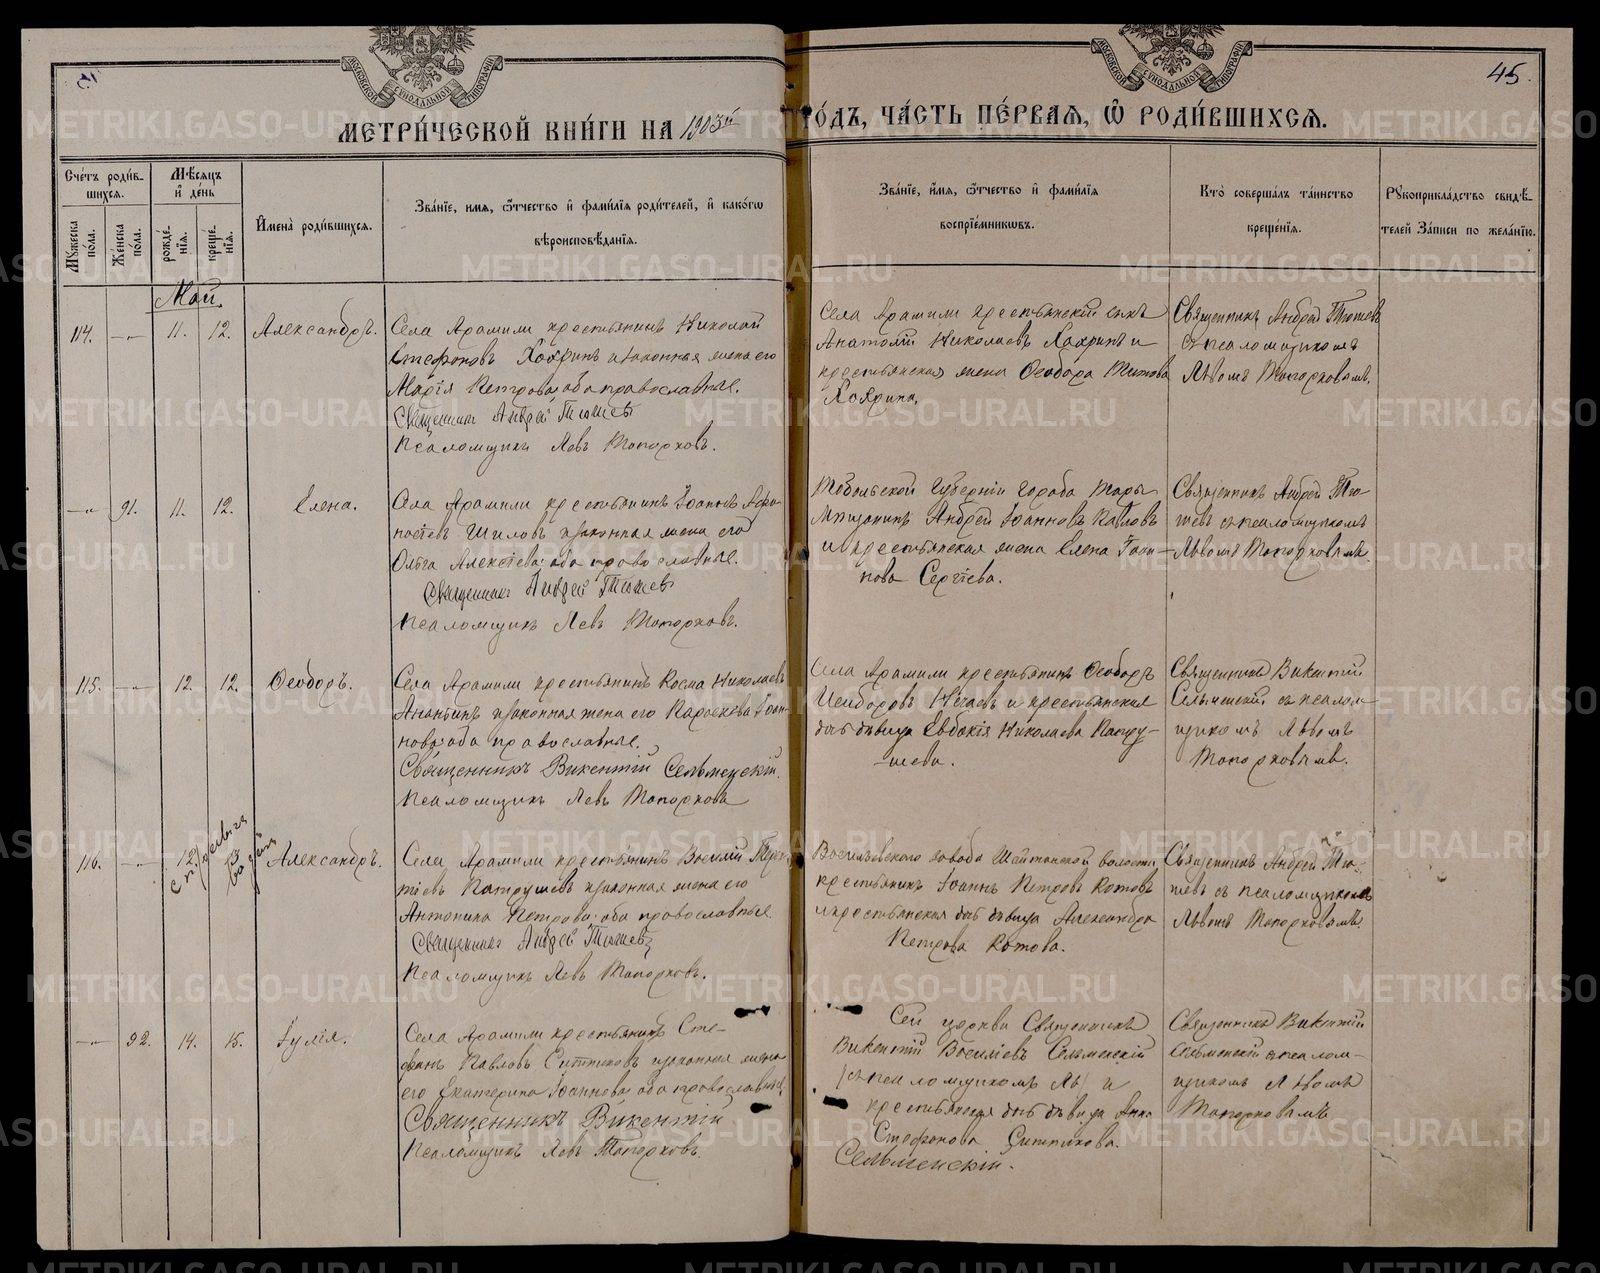 45.
МЕТРИ́ЧЕСКОЙ КНИ́ГИ НА 1903й ГО́ДЪ, ЧА́СТЬ ПЕ́РВАЯ, Ѡ҆ РОДИ́ВШИХСЯ.
МОСКОВСКОЙ СѴНОДАЛЬНОЙ ТИПОГРАФІИ
МОСКОВСКОЙ СѴНОДАЛЬНОЙ ТИПОГРАФІИ
Сче́тъ роди́в-
шихся.
Му́жеска
по́ла.
Же́нска
по́ла.
Мѣ́сяцъ
и҆ де́нь
рожде́-
нія.
креще́-
нія.
И҆мена̀ роди́вшихся.
Зва́ніе, имя, ѻ҆́тчество и҆ фами́лія роди́телей, и҆ како́гѡ
вѣроисповѣ́данія.
Зва́ніе, и҆́мя, ѻ҆́тчество и҆ фами́лія
воспріе́мниковъ.
Кто̀ соверша́лъ та́инство
креще́нія.
Рꙋкоприкла́дство свидѣ́-
телей За́писи по жела́нію.
Май.
114. —„— 11. 12. Александръ.
Села Арамили крестьянинъ Николай
Стефановъ Хохринъ и законная жена его
Марія Петрова; оба православные.
Священникъ Андрей Тюшевъ
Псаломщикъ Левъ Топорковъ.
Села Арамили крестьянский сынъ
Анатолій Николаевъ Хохринъ и
крестьянская жена Ѳеодора Титова
Хохрина.
Священникъ Андрей Тюшевъ
съ псаломщикомъ
Львомъ Топорковымъ.
—„— 91. 11. 12. Елена.
Села Арамили крестьянинъ Іоаннъ Афа-
насіевъ Шиловъ и законная жена его
Ольга Алексіева; оба православные.
Священникъ Андрей Тюшевъ
Псаломщикъ Левъ Топорковъ.
Тобольской Губерніи города Тары
Мѣщанинъ Андрей Іоанновъ Павловъ
и крестьянская жена Елена Іоан-
нова Сергіева.
Священникъ Андрей Тю-
шевъ съ псаломщикомъ
Львомъ Топорковымъ.
115. —„— 12. 12. Ѳеодоръ.
Села Арамили крестьянинъ Косма Николаевъ
Ананьинъ и законная жена его Параскева Іоан-
нова; оба православные.
Священникъ Викентій Сельменскій.
Псаломщикъ Левъ Топорковъ
Села Арамили крестьянинъ Ѳеодоръ
Исидоровъ Нечаевъ и крестьянская
дочь дѣвица Евдокія Николаева Патру-
шева.
Священникъ Викентій
Сельменскій съ псалом-
щикомъ Львомъ
Топорковымъ.
116. —„— 12. 13. Александръ.
Села Арамили крестьянинъ Василій
Патрушевъ и законная жена его
Антонина Петрова; оба православные.
Священникъ Андрей Тюшевъ
Псаломщикъ Левъ Топорковъ.
Васильевского завода Шайтанской волости
крестьянинъ Іоаннъ Петровъ Котовъ
и крестьянская дочь дѣвица Александра
Петрова Котова.
Священникъ Андрей Тю-
шевъ съ псаломщикомъ
Львомъ Топорковымъ.
—„— 92. 14. 15. Іулія.
Села Арамили крестьянинъ Сте-
фанъ Павловъ Ситниковъ и законная жена
его Екатерина Іоаннова; оба православные.
Священникъ Викентій
Псаломщикъ Левъ Топорковъ.
Сей церкви Священникъ
Викентій Василіевъ Сельменскій
/съ псаломщикомъ Ль/ и
крестьянская дочь дѣвица Анна
Стефанова Ситникова.
Сельменскій.
Священникъ Викентій
Сельменскій съ псалом-
щикомъ Львомъ
Топорковымъ